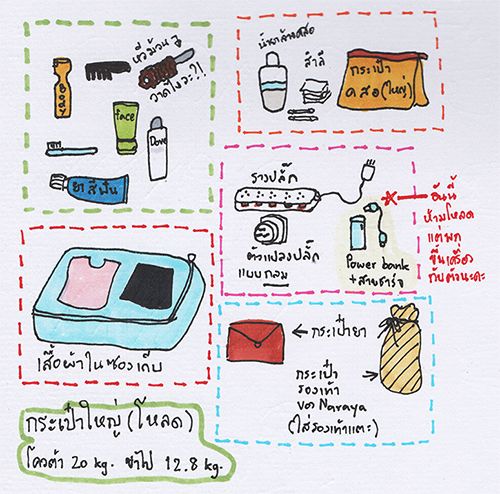 BODY
หวีม้วน 3
วาดไงวะ?!
face
Dove
ยาสีฟัน
น้ำยาล้างคสอ
สำลี
กระเป๋า
คสอ (ใหญ่)
รางปลั๊ก
ตัวแปลงปลั๊ก
แบบกลม
Power bank
+ สายชาร์จ
อันนี้
ห้ามโหลด
แต่พก
ขึ้นเครื่อง
กับตัวนะคะ
เสื้อผ้าในซองเก็บ
กระเป๋ายา
กระเป๋า
รองเท้า
ของ Naraya
(ใส่รองเท้าแตะ)
กระเป๋าใหญ่ (โหลด)
โควต้า 20 kg. ขาไป 12.8 kg.